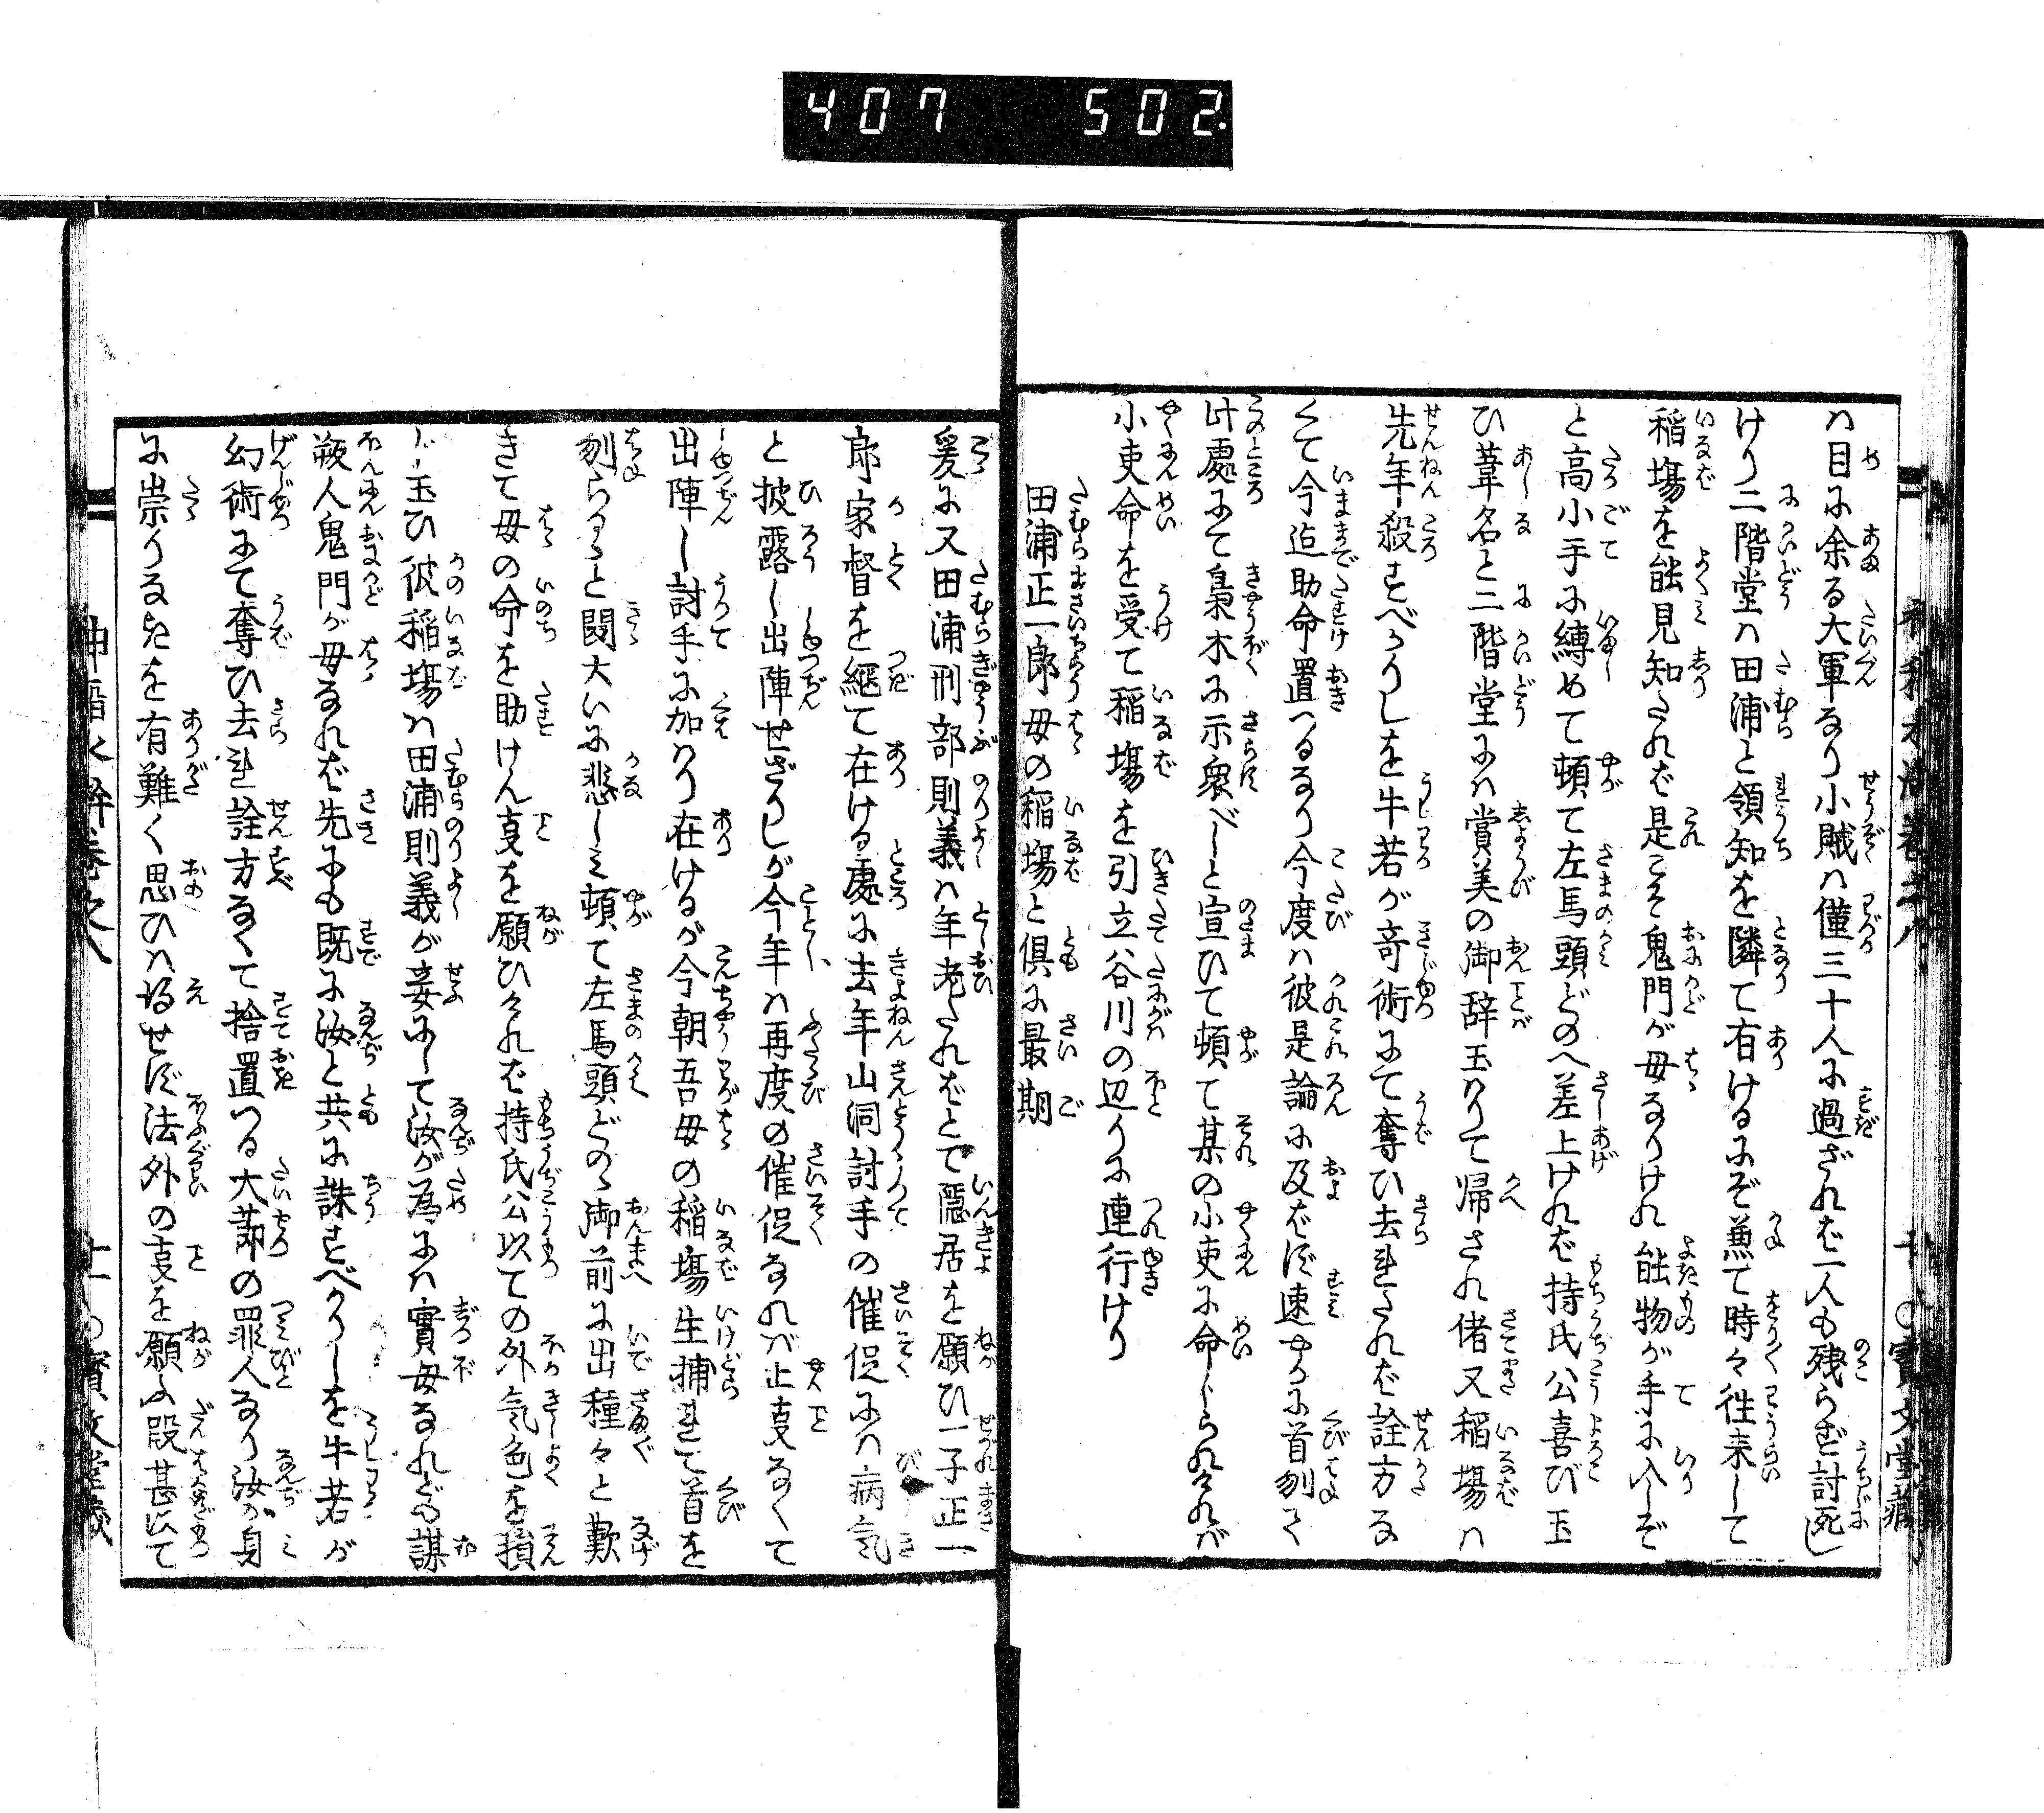 407 502.
ハ目に余る大軍なり小賊ハ僅三十人に過ざれば一人も残らず討死し
けり二階堂ハ田浦と領知を隣て有けるにぞ兼て時々往来して
稲場を能見知たれば是こそ鬼門が母なりけれ能物が手に入しぞ
と高小手に縛めて頓て左馬頭どのへ差上ければ持氏公喜び玉
ひ葦名と二階堂にハ賞美の御辞玉ハりて帰され偖又稲場ハ
先年殺すべかりしを牛若が奇術にて奪ひ去れたれば詮方な
くて今迄助命置つるなり今度ハ彼是論に及ばず速かに首刎て
此處にて梟木に示衆べしと宣ひて頓て某の小吏に命じられけれバ
小吏命を受て稲場を引立谷川の辺りに連行けり
田浦正一郎母の稲場と倶に最期
爰に又田浦刑部則義ハ年老たればとて隠居を願ひ一子正一
郎家督を継て在ける處に去年山洞討手の催促にハ病気
と披露し出陣せざりしが今年ハ再度の催促なれバ止支なくて
出陣し討手に加ハり在けるが今朝吾母の稲場生捕れて首を
刎らるゝと聞大いに悲しミ頓て左馬頭どのゝ御前に出種々と歎
きて母の命を助けん支を願ひけれバ持氏公以ての外気色を損
じ玉ひ彼稲場ハ田浦則義が妾にして汝が為にハ實母なれども謀
叛人鬼門が母なれば先にも既に汝と共に誅すべかりしを牛若が
幻術にて奪ひ去れ詮方なくて捨置つる大切の罪人なり汝が身
に祟りなきを有難く思ひハ得せず法外の支を願ふ段甚以て